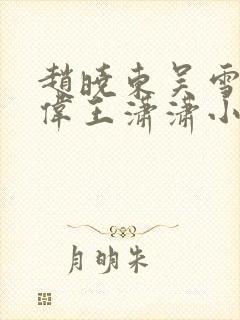 趙曉東吳雪
偉王瀟瀟小
月明朱